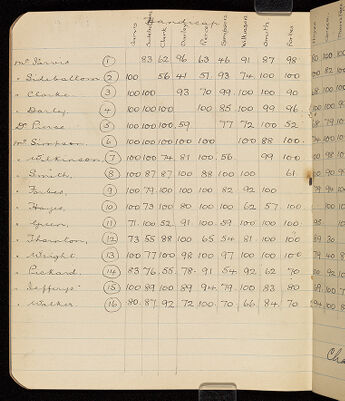 Handicap
Jarvis Sidebottom Clarke Darley Pierce Simpson Wilkinson Smith Forbes
Mr Jarvis 1 83 62 96 63 46 91 87 98
" Sidebottom 2 100 56 41 51 93 74 100 100
" Clarke 3 100 100 93 70 99 100 100 90
" Darley 4 100 100 100 100 85 100 99 96
Dr Pierce 5 100 100 100 59 77 72 100 52
Mr Simpson 6 100 100 100 100 100 100 88 100
" Wilkinson 7 100 100 74 81 100 56 99 100
" Smith 8 100 87 87 100 88 100 100 61
" Forbes 9 100 79 100 100 100 82 92 100
" Hayes 10 100 73 100 80 100 100 62 57 100
" Green 11 71 100 52 91 100 59 100 100 100
" Thornton 12 73 55 88 100 65 54 81 100 100
" Wright 13 100 77 100 98 100 97 100 100 100
" Pickard 14 83 76 55 78 91 54 92 62 70
" Jefferys 15 100 89 100 89 94 79 100 83 80
" Walker 16 80 87 92 72 100 70 66 84 70